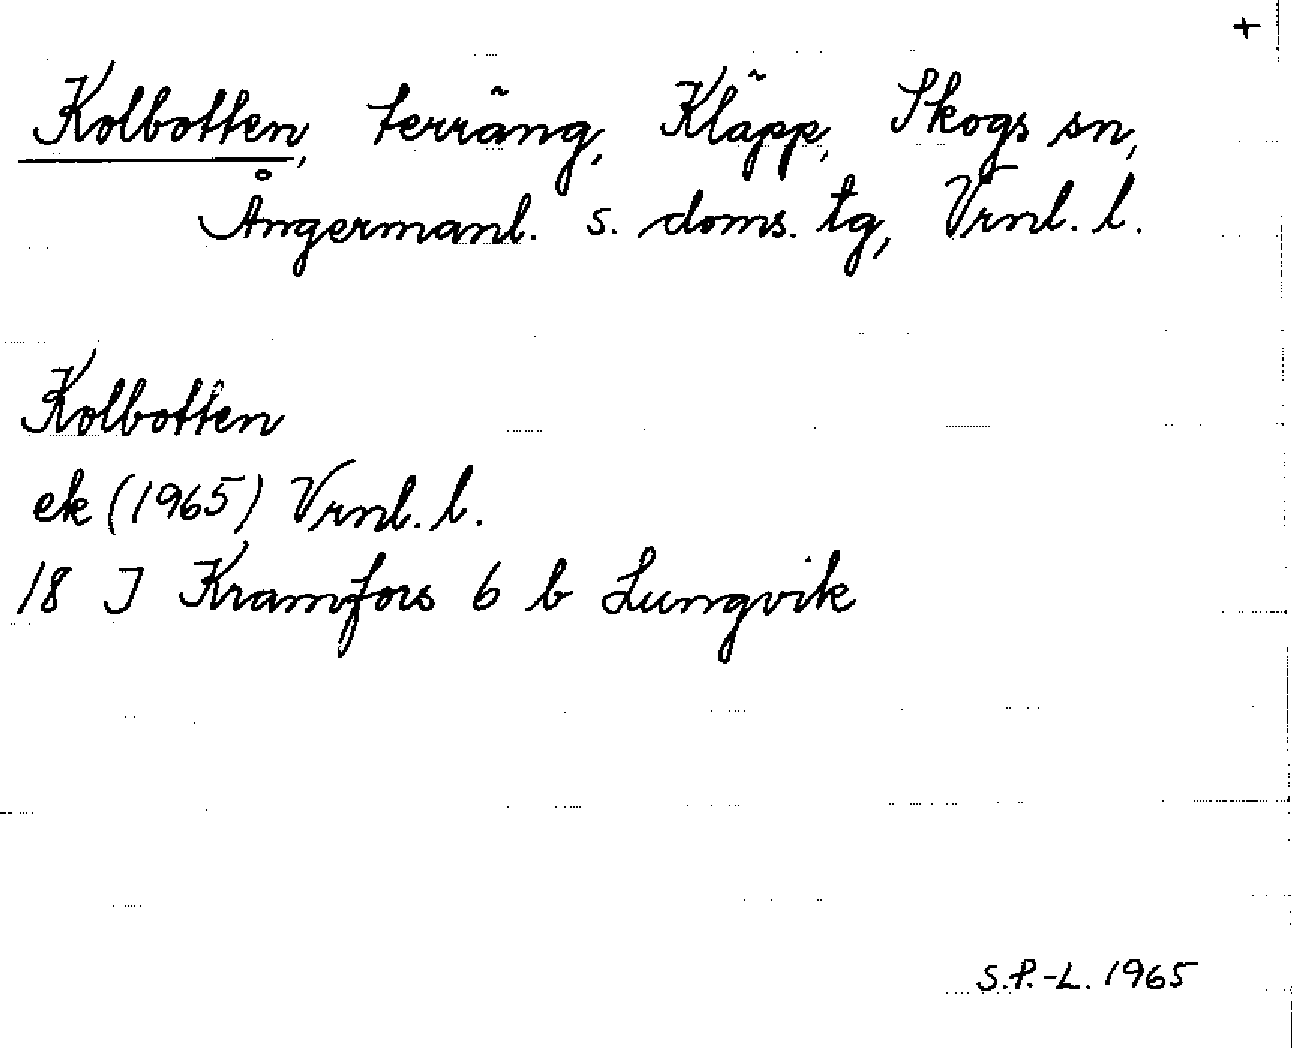 +
Kolbotten, terräng, Kläpp, Skogs sn,
Ångermanl. s. doms. tg, Vrnl. l.
Kolbotten
ek (1965) Vrnl. l.
18 J Kramfors 6 b Lungvik
S.P.-L. 1965